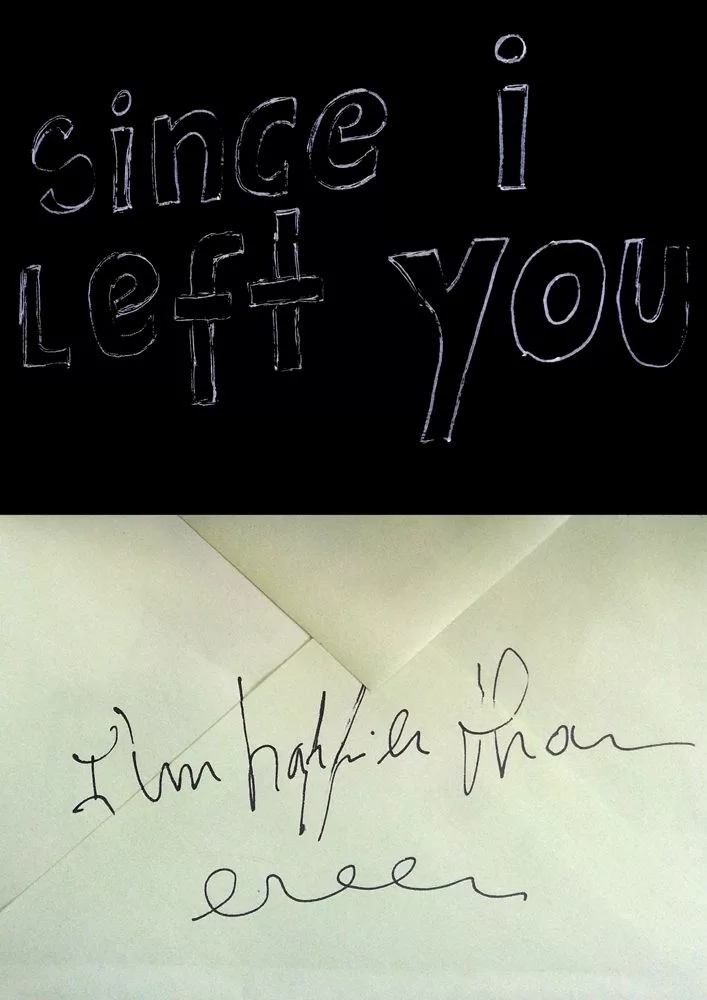 since i
Left you
I'm happier than
ever